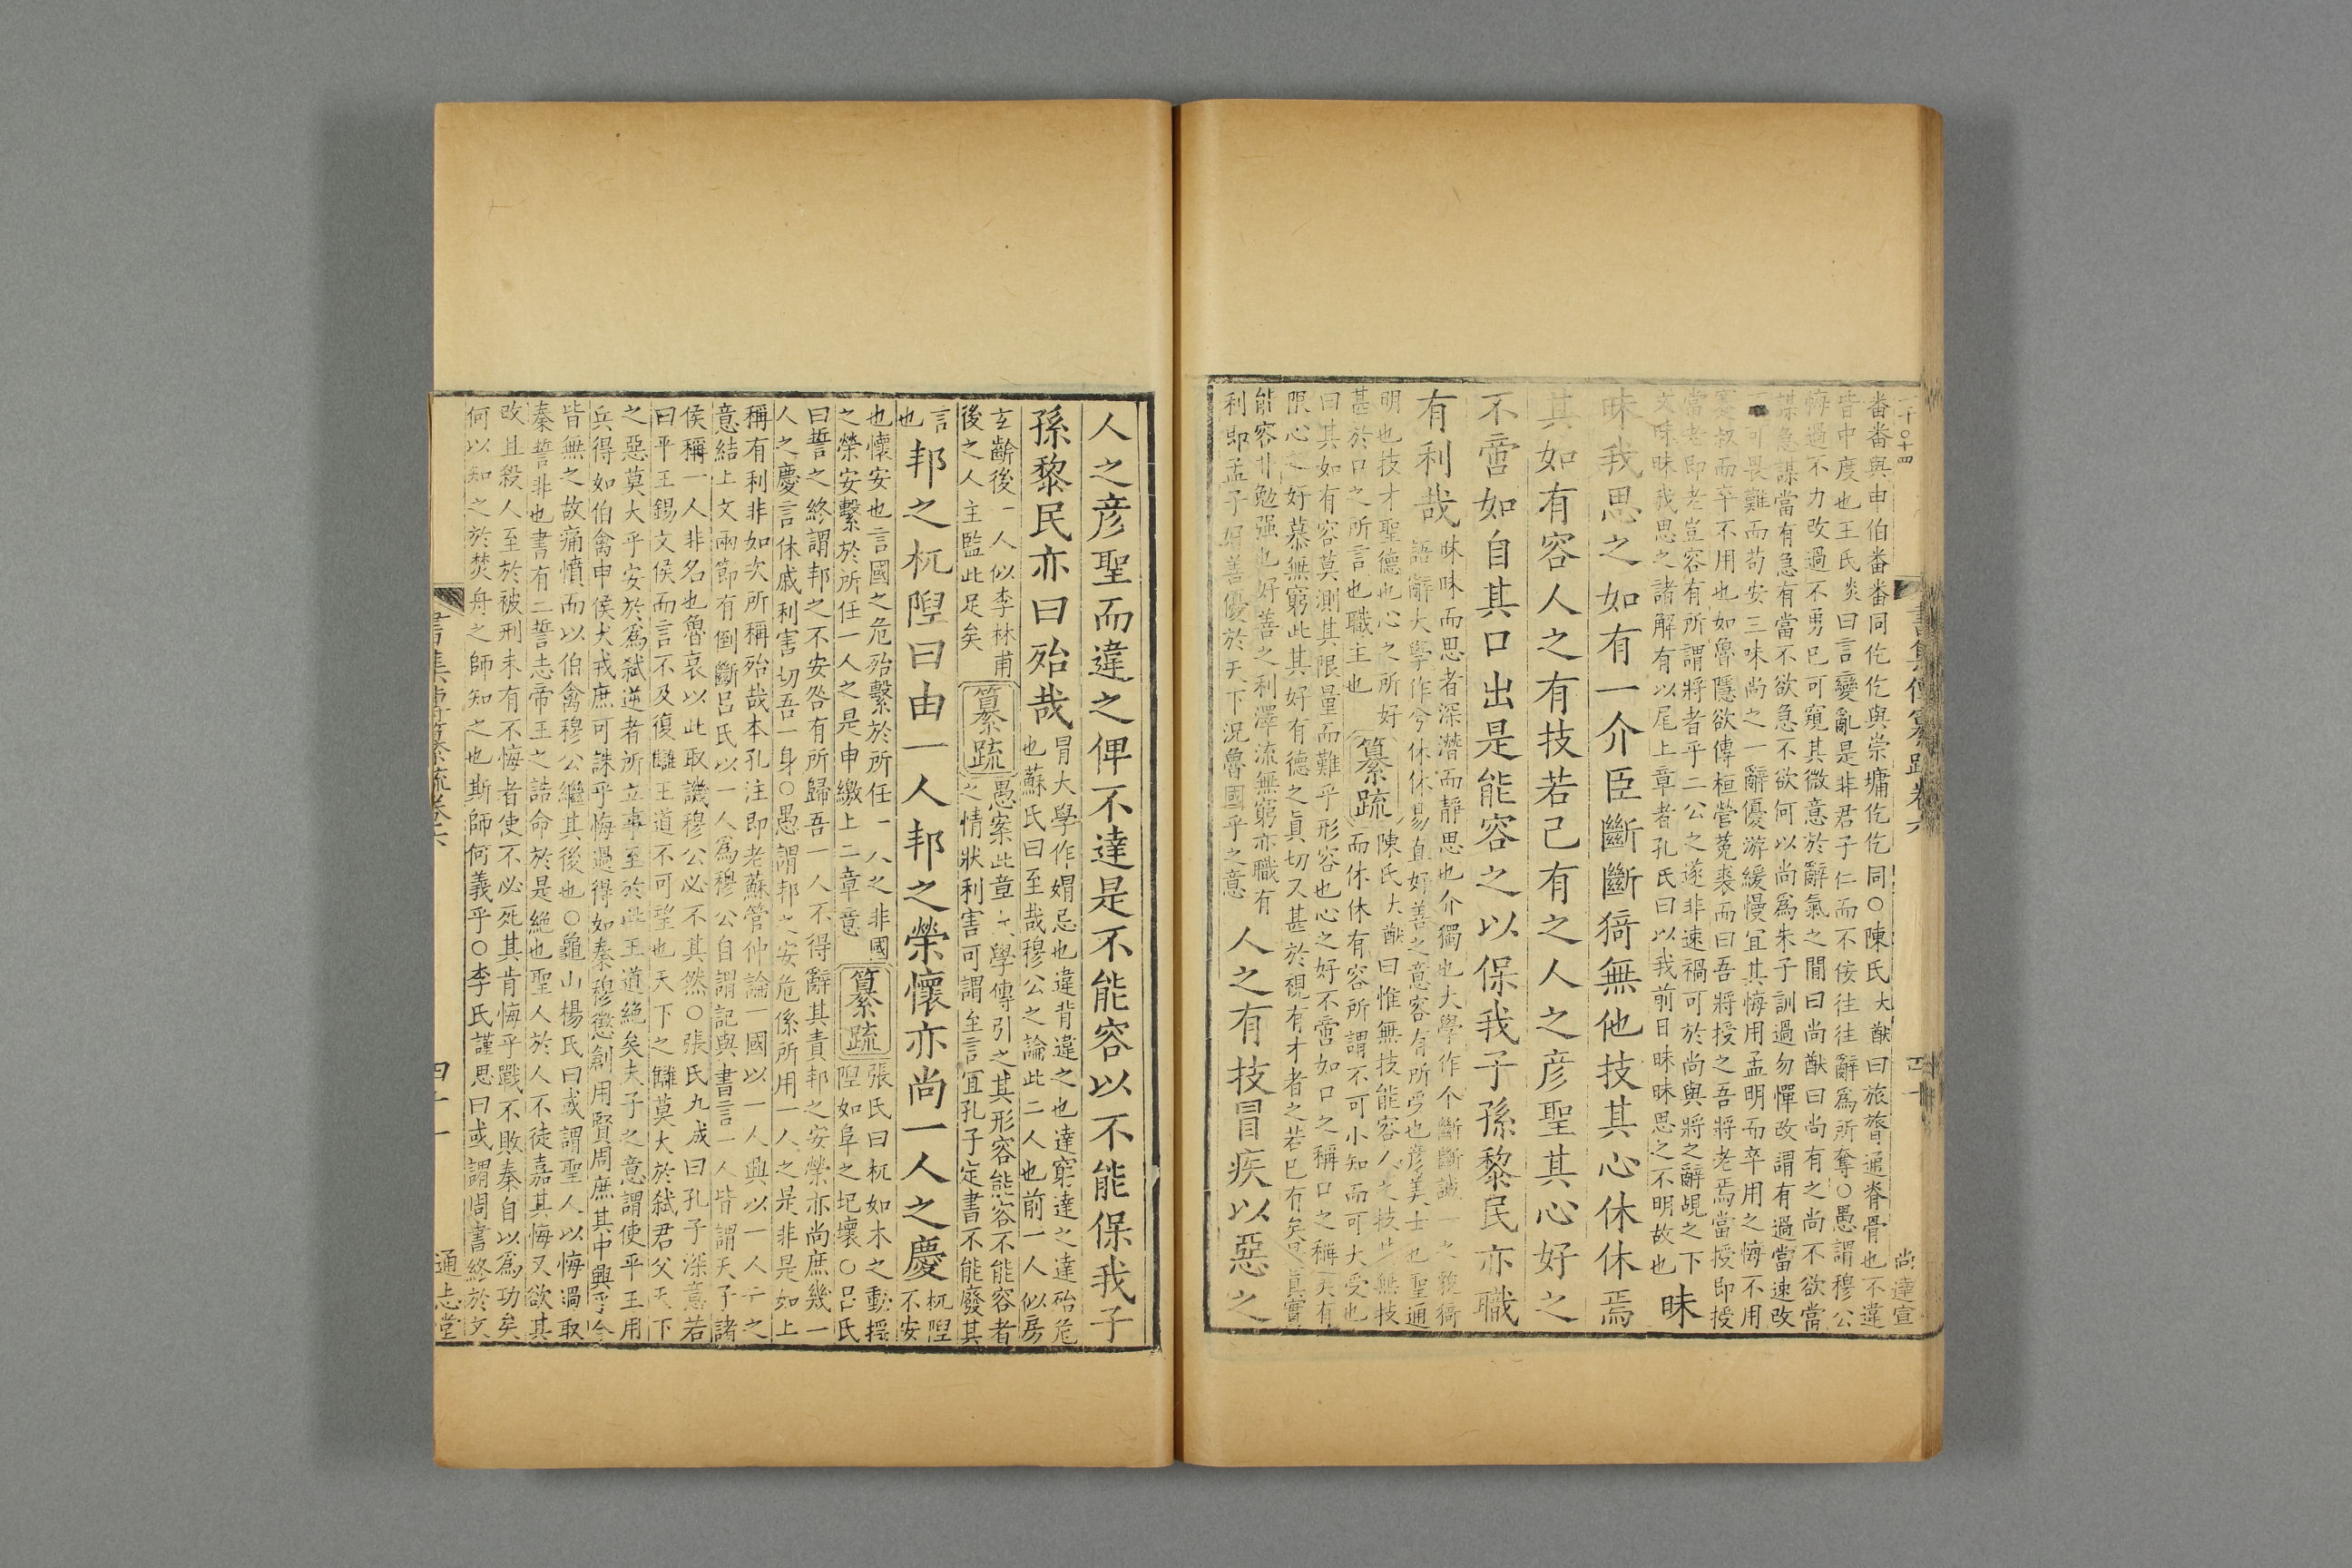 一千〇十四
書集傳纂疏卷六
四十
尚達宣
番番與申伯番番同仡仡與崇墉仡仡同〇陳氏大猷曰旅膂通脊骨也不違
皆中度也王氏炎曰言變亂是非君子仁而不佞往往辭為所奪〇愚謂穆公
悔過不力改過不勇已可窺其微意於辭氣之間曰尚猷曰尚有之尚不欲當
謀急謀當有急有當不欲急不欲何以尚爲朱子訓過勿憚改謂有過當速改
可畏難而苟安三味尚之一辭優游緩慢冝其悔用孟明而卒用之悔不用
蹇叔而卒不用也如魯隱欲傳桓營菟裘而曰吾將授之吾將老焉當授即授
當老即老豈容有所謂將者乎二公之遂非速禍可於尚與將之辭覘之下
文昧昧我思之諸解有以尾上章者孔氏曰以我前日昧昧思之不明故也 昧
昧我思之如有一介臣斷斷猗無他技其心休休焉
其如有容人之有技若己有之人之彦聖其心好之
不啻如自其口出是能容之以保我子孫黎民亦職
有利哉 昧昧而思者深潛而靜思也介獨也大學作个斷斷誠一之貌猗
語辭大學作兮休休易直好善之意容有所受也彦美士也聖通
明也技才聖德也心之所好
甚於口之所言也職主也 纂疏 陳氏大猷曰惟無技能容人之技若無技
而休休有容所謂不可小知而可大受也
曰其如有容莫測其限量而難乎形容也心之好不啻如口之稱口之稱美有
限心之好慕無窮此其好有德之眞切又甚於視有才者之若已有矣是眞實
能容廾勉强也好善之利澤流無窮亦職有
利即孟子好善優於天下況魯國乎之意 人之有技冒疾以惡之
人之彦聖而違之俾不達是不能容以不能保我子
孫黎民亦曰殆哉 冒大學作媢忌也違背違之也達窮達之達殆危
也蘇氏曰至哉穆公之論此二人也前一人似房
玄齡後一人似李林甫
後之人主監此足矣 纂疏 愚案此章大學傳引之其形容能容不能容者
之情狀利害可謂至言宜孔子定書不能廢其
言
也 邦之杌隉曰由一人邦之榮懷亦尚一人之慶 杌隉
不安
也懷安也言國之危殆繫於所任一人之非國
之榮安繫於所任一人之是申繳上二章意 纂疏 張氏曰杌如木之動揺
隉如阜之圯壞〇呂氏
曰誓之終謂邦之不安咎有所歸吾一人不得辭其責邦之安榮亦尚庶幾一
人之慶言休戚利害切吾一身〇愚謂邦之安危係所用一人之是非是如上
稱有利非如次所稱殆哉本孔注即老蘇管仲論一國以一人興以一人亡之
意結上文兩節有倒斷呂氏以一人爲穆公自謂記與書言一人皆謂天子諸
侯稱一人非名也魯哀以此取譏穆公必不其然〇張氏九成曰孔子深意若
曰平王錫文侯而言不及復讎王道不可望也天下之讎莫大於弑君父天下
之惡莫大乎安於爲弑逆者所立事至於此王道絶矣夫子之意謂使平王用
兵得如伯禽申侯犬戎庶可誅乎悔過得如秦穆懲創用賢周庶其中興乎今
皆無之故痛憤而以伯禽穆公繼其後也〇龜山楊氏曰或謂聖人以悔過取
秦誓非也書有二誓志帝王之誥命於是絶也聖人於人不徒嘉其悔又欲其
改且殺人至於被刑未有不悔者使不必死其肯悔乎戰不敗秦自以爲功矣
何以知之於焚舟之師知之也斯師何義乎〇李氏謹思曰或謂周書終於文
書集傳纂疏卷六
四十一
通志堂